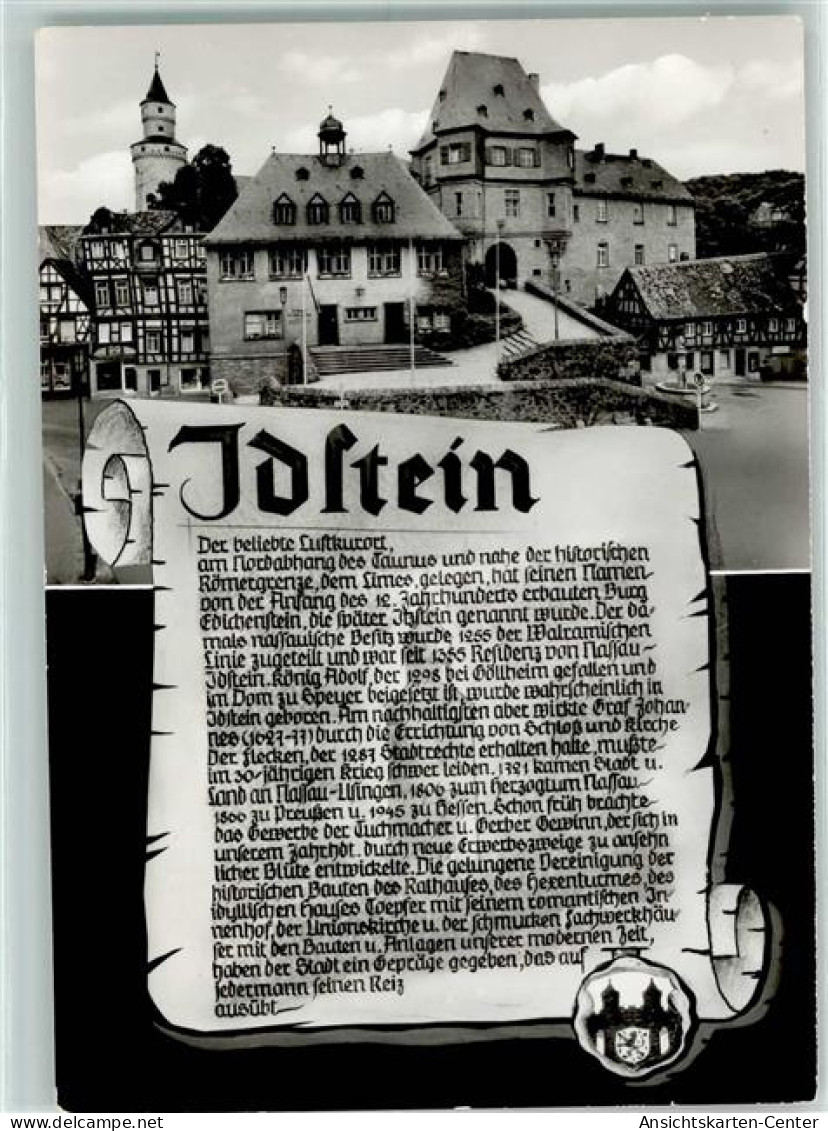 Idstein
Der beliebte Luftkurort,
am Nordabhang des Taunus und nahe der historischen
Römergrenze, dem Limes, gelegen, hat seinen Namen
von der Anfang des 12. Jahrhunderts erbauten Burg
Edichenstein, die später Itzstein genannt wurde. Der da-
mals nassauische Besitz wurde 1255 der Walramischen
Linie zugeteilt und war seit 1355 Residenz von Nassau-
Idstein. König Adolf, der 1298 bei Göllheim gefallen und
im Dom zu Speyer beigesetzt ist, wurde wahrscheinlich in
Idstein geboren. Am nachhaltigsten aber wirkte Graf Johan-
nes (1627-77) durch die Errichtung von Schloß und Kirche
Der Flecken, der 1287 Stadtrechte erhalten hatte, mußte
im 30-jährigen Krieg schwer leiden. 1721 kamen Stadt u.
Land an Nassau-Usingen, 1806 zum Herzogtum Nassau
1866 zu Preußen u. 1945 zu Hessen. Schon früh brachte
das Gewerbe der Tuchmacher u. Gerber Gewinn, der sich in
unserem Jahrhdt. durch neue Erwerbszweige zu ansehn
licher Blüte entwickelte. Die gelungene Vereinigung der
historischen Bauten des Rathauses, des Hexenturmes, des
idyllischen Hauses Toepfer mit seinem romantischen In-
nenhof, der Unionskirche u. der schmucken Fachwerkhäu-
ser mit den Bauten u. Anlagen unserer modernen Zeit,
haben der Stadt ein Gepräge gegeben, das auf
jedermann seinen Reiz
ausübt
Ansichtskarten-Center